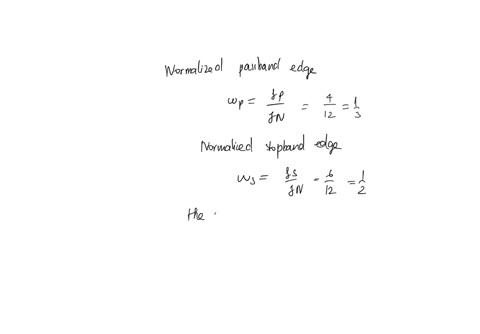 Normalized passband edge
wp = fp / fN = 4 / 12 = 1 / 3
Normalized stopband edge
ws = fs / fN = 6 / 12 = 1 / 2
the